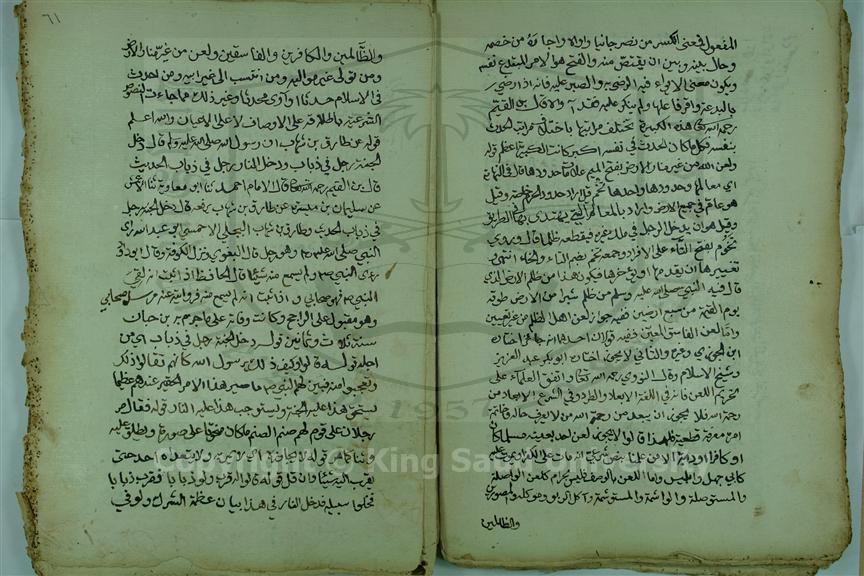 المفعول في معنى الكسر من نصر جانيا وآواه وأجاره من خصمه
وحال بينه وبين ان يقتص منه والفتح هو الامر المبتدع نفسه
ويكون معنى الايواء فيه الرضى به والصبر عليه فانه اذا رضى
بالبدعة واقر فاعلها ولم ينكر عليه فقد آواه قال ابن القيم
رحمه الله هذه الكبيرة تختلف مراتبها باختلاف مراتب الحدث
بنفسه فكلما كان الحدث في نفسه اكبر كانت الكبيرة اعظم قوله
ولعن الله من غير منار الارض بفتح الميم علامات حدودها قال في النهاية
اي معالمها وحدودها واحدها تخم قيل اراد حدود الحرم خاصة وقيل
هو عام في جميع الارض واراد المعالم التي يهتدى بها في الطريق
وقيل هو ان يدخل الرجل في ملك غيره فيقتطعه ظلما قال ويروى
تخوم بفتح التاء على الافراد وجمعه تخم بضم التاء والخاء انتهى
تغييرها ان يقدمها او يؤخرها فيكون هذا من ظلم الارض الذي
قال فيه النبي صلى الله عليه وسلم من ظلم شبرا من الارض طوقه
يوم القيمة من سبع ارضين ففيه جواز لعن اهل الظلم من غير تعيين
واما لعن الفاسق المعين ففيه قولان احدهما انه جائز اختاره
ابن الجوزي وغيره والثاني لا يجوز اختاره ابو بكر عبد العزيز
وشيخ الاسلام وقال النووي رحمه الله تعالى واتفق العلماء على
تحريم اللعن فانه في اللغة الابعاد والطرد وفي الشرع الابعاد من
رحمة الله فلا يجوز ان يبعد من رحمة الله من لا يعرف حاله وخاتمة
امره معرفة قطعية فلهذا قالوا لا يجوز لعن احد بعينه مسلما كان
او كافرا او دابة الا من علمنا بنص شرعي انه مات على الكفر او يموت عليه
كابي جهل وابليس واما اللعن بالوصف فليس بحرام كلعن الواصلة
والمستوصلة والواشمة والمستوشمة وآكل الربا وموكله والمصورين
والظالمين
٦١
والظالمين والكافرين والفاسقين ولعن من غير منار الارض
ومن تولى غير مواليه ومن انتسب الى غير ابيه ومن احدث
في الاسلام حدثا او آوى محدثا وغير ذلك مما جاءت النصوص
الشرعية باطلاقه على الاوصاف لا على الاعيان والله اعلم
قوله عن طارق بن شهاب ان رسول الله صلى الله عليه وسلم قال دخل
الجنة رجل في ذباب ودخل النار رجل في ذباب الحديث
قال ابن القيم رحمه الله تعالى قال الامام احمد ثنا ابو معاوية ثنا الاعمش
عن سليمان بن ميسرة عن طارق بن شهاب يرفعه قال دخل الجنة رجل
في ذباب الحديث وطارق بن شهاب البجلي الاحمسي ابو عبد الله رأى
النبي صلى الله عليه وسلم وهو رجل قال البغوي ونزل الكوفة وقال ابو داود
رأى النبي صم ولم يسمع منه شيئا قال الحافظ اذا ثبت انه لقي
النبي صم فهو صحابي واذا ثبت انه لم يسمع منه فروايته عنه مرسل صحابي
وهو مقبول على الراجح وكانت وفاته على ما جزم به ابن حبان
سنة ثلاث وثمانين قوله دخل الجنة رجل في ذباب اي من
اجله قوله قالوا وكيف ذلك يرسول الله كانهم تقالوا ذلك
وتعجبوا منه فبين لهم النبي صم ما صير هذا الامر الحقير عندهم عظيما
يستحق هذا عليه الجنة ويستوجب هذا عليه النار قوله فقال مر
رجلان على قوم لهم صنم الصنم ما كان منحوتا على صورة ويطلق عليه
وثنا كما مر قوله لا يجاوزه اي لا يمر به ولا يتعداه احد حتى
يقرب اليه شيئا وان قل قوله قالوا له قرب ولو ذبابا فقرب ذبابا
فخلوا سبيله فدخل النار في هذا بيان عظمة الشرك ولو في